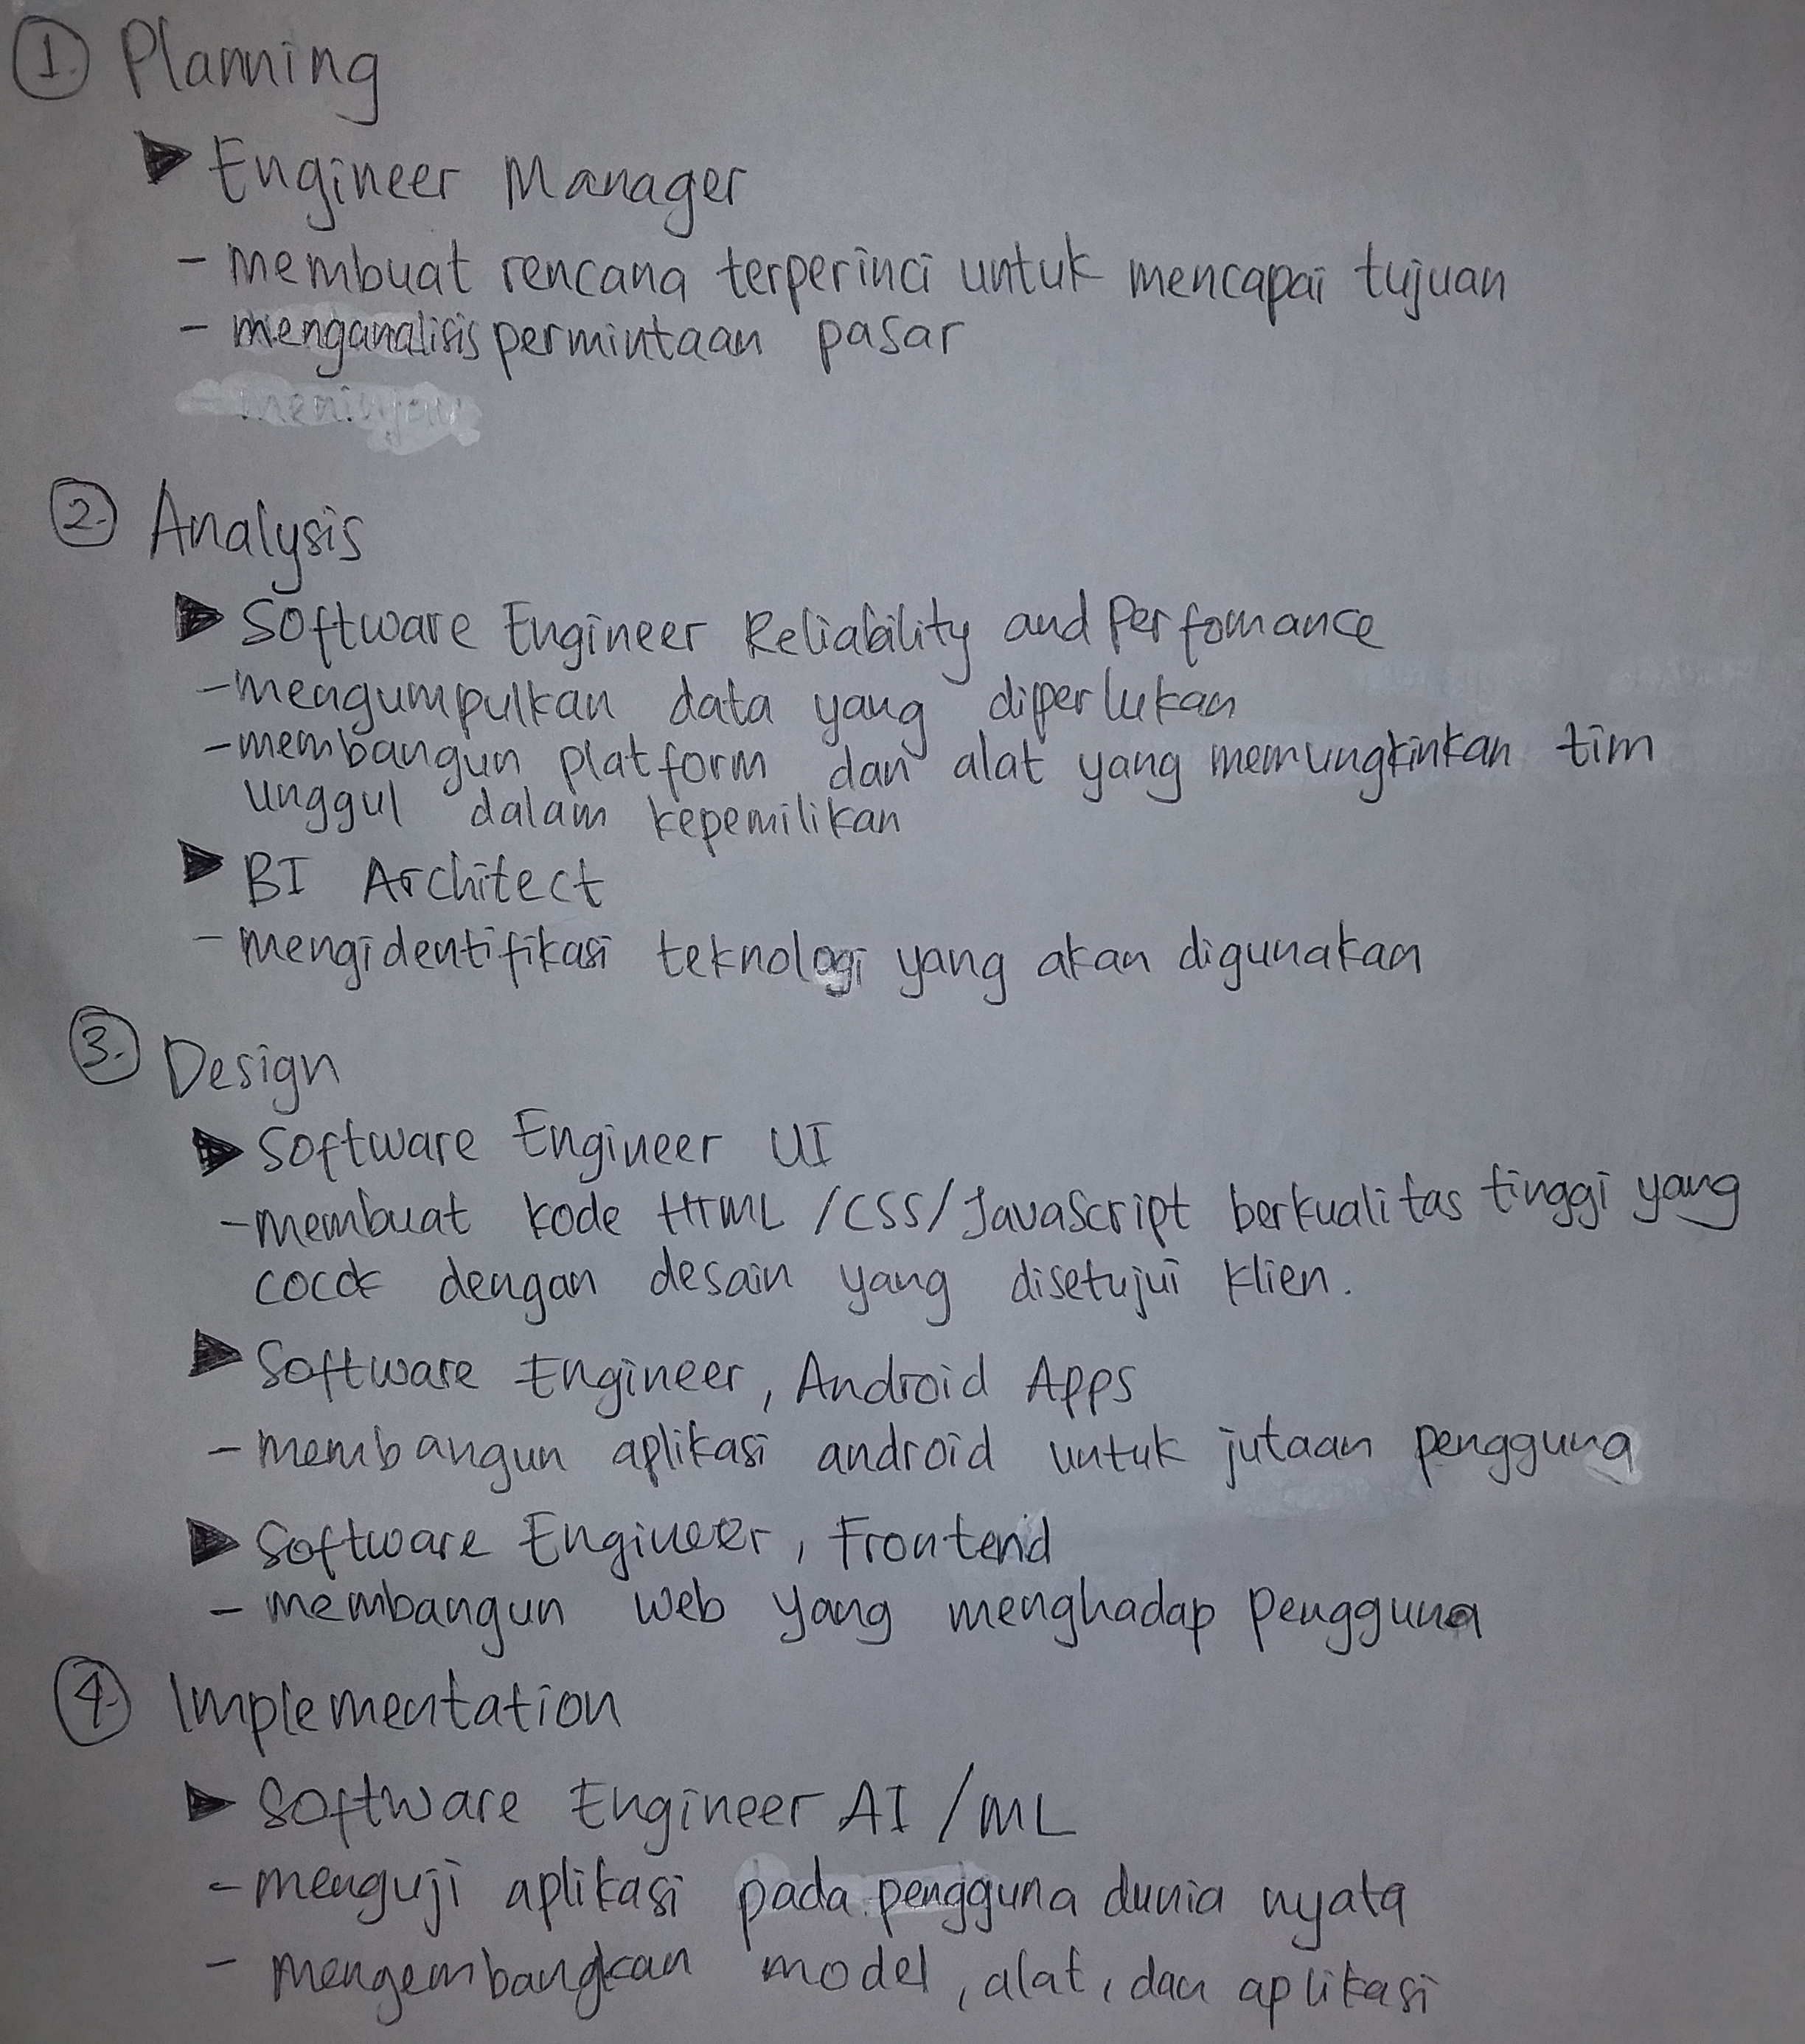 1. Planning
▶ Engineer Manager
- membuat rencana terperinci untuk mencapai tujuan
- menganalisis permintaan pasar
2. Analysis
▶ Software Engineer Reliability and Perfomance
- mengumpulkan data yang diperlukan
- membangun platform dan alat yang memungkinkan tim
unggul dalam kepemilikan
▶ BI Architect
- mengidentifikasi teknologi yang akan digunakan
3. Design
▶ Software Engineer UI
- membuat kode HTML /CSS/JavaScript berkualitas tinggi yang
cocok dengan desain yang disetujui klien.
▶ Software Engineer, Android Apps
- membangun aplikasi android untuk jutaan pengguna
▶ Software Engineer, Frontend
- membangun web yang menghadap pengguna
4. Implementation
▶ Software Engineer AI /ML
- menguji aplikasi pada pengguna dunia nyata
- mengembangkan model, alat, dan aplikasi